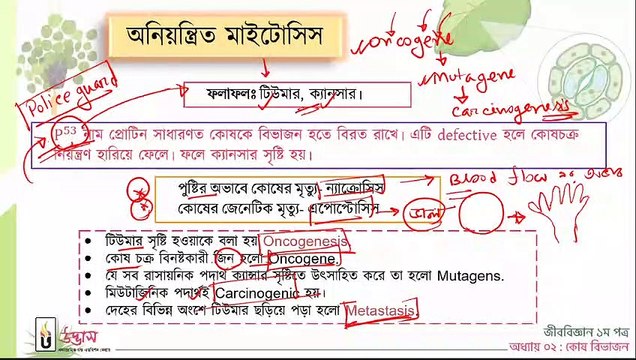 অনিয়ন্ত্রিত মাইটোসিস
oncogene
mutagene
carcinogenesis
Police guard
ফলাফলঃ টিউমার, ক্যানসার।
P53 নাম প্রোটিন সাধারণত কোষকে বিভাজন হতে বিরত রাখে। এটি defective হলে কোষচক্র
নিয়ন্ত্রণ হারিয়ে ফেলে। ফলে ক্যানসার সৃষ্টি হয়।
পুষ্টির অভাবে কোষের মৃত্যু- ন্যাক্রোসিস
Blood flow
কোষের জেনেটিক মৃত্যু- এপোপ্টোসিস
ভাল
টিউমার সৃষ্টি হওয়াকে বলা হয় Oncogenesis.
কোষ চক্র বিনষ্টকারী জিন হলো Oncogene.
যে সব রাসায়নিক পদার্থ ক্যান্সার সৃষ্টিতে উৎসাহিত করে তা হলো Mutagens.
মিউটাজিনিক পদার্থই Carcinogenic হয়।
দেহের বিভিন্ন অংশে টিউমার ছড়িয়ে পড়া হলো Metastasis.
উদ্ভাস
জীববিজ্ঞান ১ম পত্র
অধ্যায় ০২ : কোষ বিভাজন